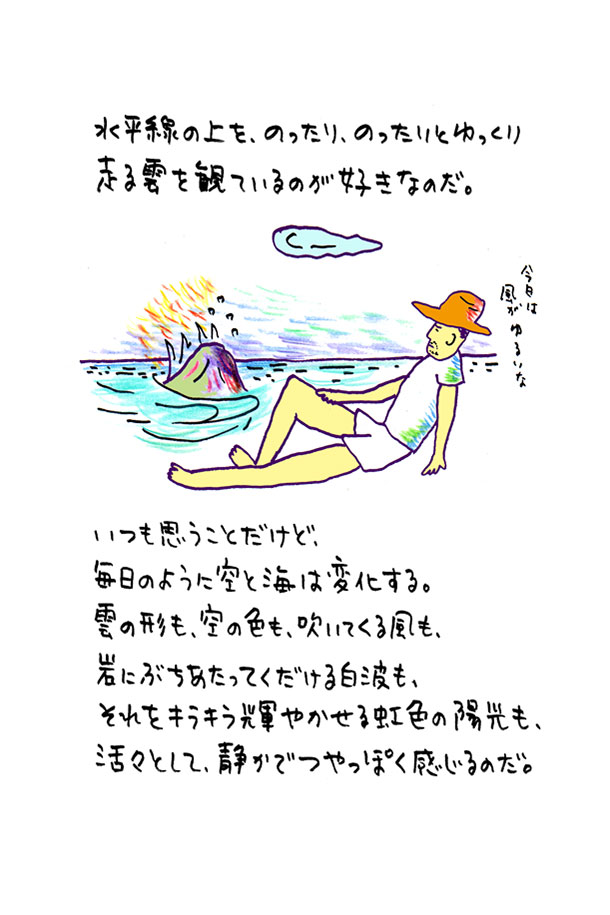 水平線の上を、のったり、のったりとゆっくり
走る雲を観ているのが好きなのだ。
今日は
風が
ゆるいな
いつも思うことだけど、
毎日のように空と海は変化する。
雲の形も、空の色も、吹いてくる風も、
岩にぶちあたってくだける白波も、
それをキラキラ輝やかせる虹色の陽光も、
活々として、静かでつやっぽく感じるのだ。